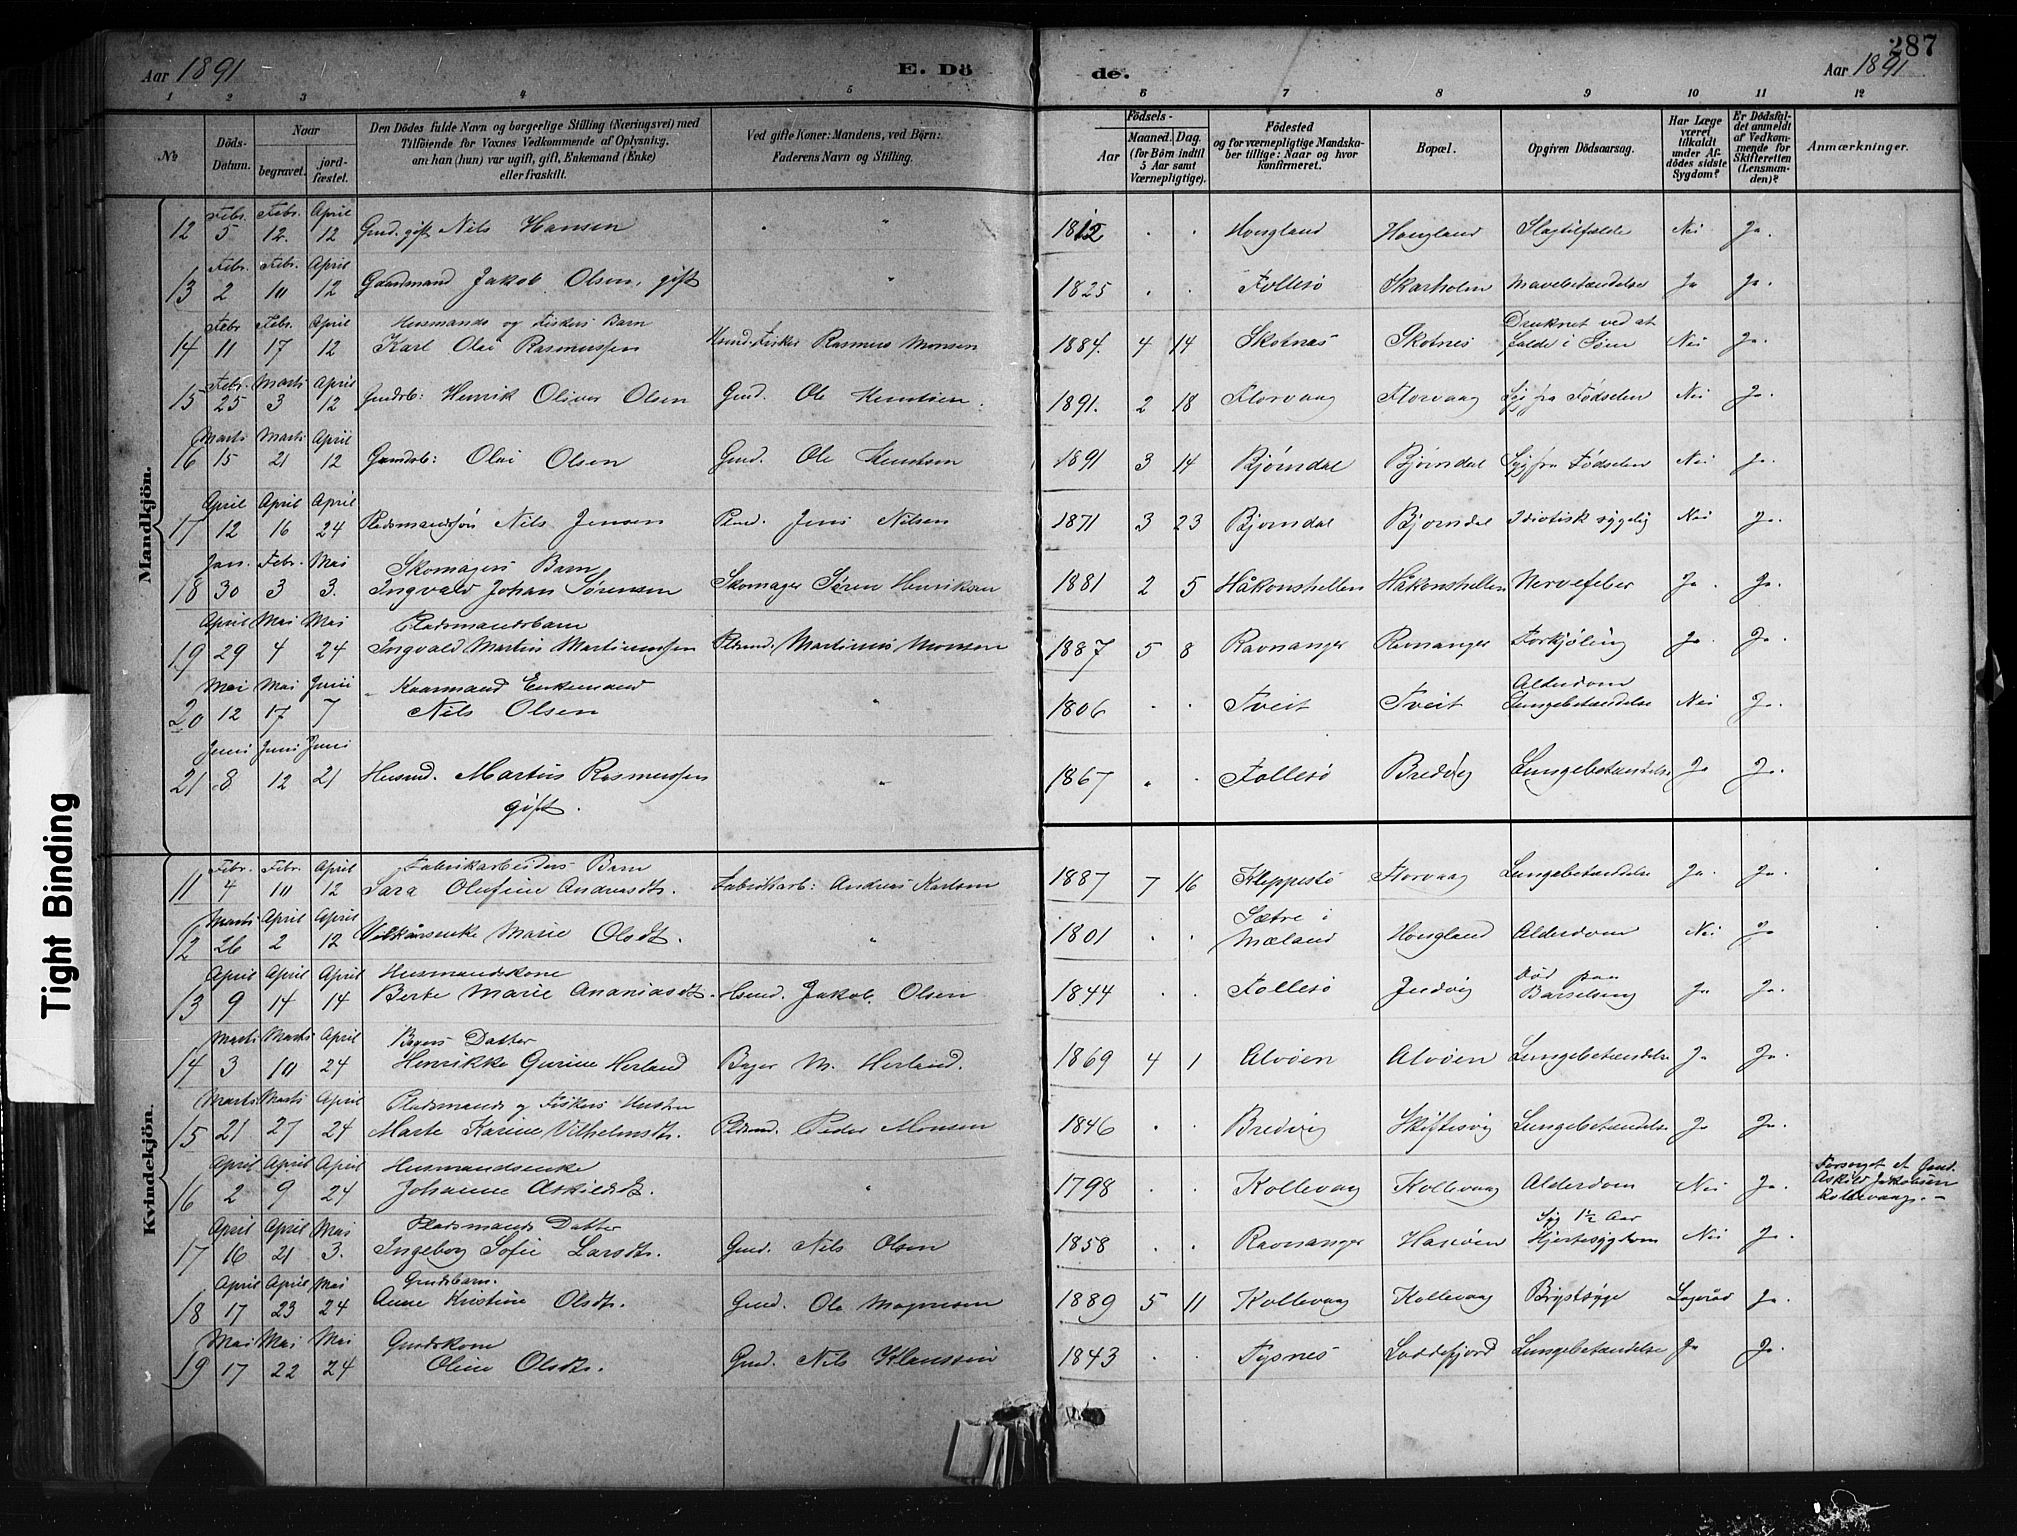 287
Aar 1891 E. Dö de. Aar 1891
1 2 3 4 5 6 7 8 9 10 11 12
No Döds-Datum. Naar begravet. jordfæstet. Den Dödes fulde Navn og borgerlige Stilling (Næringsvei) med Tilföiende for Voxnes Vedkommende af Oplysning, om han (hun) var ugift, gift, Enkemand (Enke) eller fraskilt. Ved gifte Koner: Mandens, ved Børn: Faderens Navn og Stilling. Födsels- Aar Maaned. Dag. (for Börn indtil 5 Aar samt Værnepligtige). Födested og for værnepligtige Mandskaber tillige: Naar og hvor konfirmeret. Bopæl. Opgiven Dödsaarsag. Har Læge været tilkaldt under Afdödes sidste Sygdom? Er Dödsfaldet anmeldt af Vedkommende for Skifteretten (Lensmanden)? Anmærkninger.
Mandkjön.
12 Febr. 5 Febr. 12. April 12 Gmd. gift Nils Hansen " 1812 . . Hougland Hougland Slagtilfælde Nei Ja.
13 Febr. 2 Febr. 10 April 12 Gaardmand Jakob Olsen, gift " 1825 . . Follesø Skarholm Mavebetændelse Ja Ja.
14 Febr 11 Febr. 17 April 12 Husmands og Fiskers Barn
Karl Olai Rasmussen Hsmd. Fisker Rasmus Monsen 1884. 4 14 Skotnes Skotnes Druknet ved at falde i Søen Nei Ja.
15 Febr. 25 Marts 3 April 12 Gmdsb: Henrik Oliver Olsen Gmd. Ole Knutsen. 1891. 2 18 Florvaag Florvaag Syg fra Fødselen Nei Ja.
16 Marts 15 Marts 21 April 12 Gmdsb: Olai Olsen Gmd. Ole Knutsen 1891 3 14 Bjørndal Bjørndal Syg fra Fødselen Nei Ja.
17 April 12 April 16 April 24 Pladsmandssøn Nils Jensen Plmd. Jens Nilsen 1871 3 23 Bjørndal Bjørndal Idiotisk sygelig Nei Ja.
18 Jan. 30 Febr. 3 Mai 3. Skomagers Barn
Ingvald Johan Sørensen Skomager Søren Henriksen 1881 2 5 Håkonshellen Håkonshellen Nervefeber Ja. Ja.
19 April 29 Mai 4 Mai 24 Pladsmandsbarn
Ingvald Martin Martinussen Pldsmd. Martinus Monsen 1887 5 8 Ravnanger Ravnanger Forkjøling Ja. Ja.
20 Mai 12 Mai 17 Juni 7 Kaarmand Enkemand
Nils Olsen " 1806 . . Tveit Tveit Alderdom Lungebetændelse Nei Ja.
21 Juni 8 Juni 12 Juni 21 Husmd. Martin Rasmussen
gift. " 1867 . . Follesø Bredvig Lungebetændelse Ja Ja.
Kvindekjön.
11 Febr. 4 Febr. 10 April 12 Fabrikarbeiders Barn
Sara Olufine Andreasdtr. Fabrikarb: Andreas Karlsen 1887 7 16 Kleppestø Florvaag Lungebetændelse Ja. Ja.
12 Marts 26 April 2 April 12 Vilkårsenke Marie Olsdtr. " 1801 . . Sætre i Mæland Hougland Alderdom Nei Ja
13 April 9 April 14 April 14 Husmandskone
Berte Marie Ananiasdtr. Hsmd. Jakob Olsen 1844 . . Follesø Juvig Død paa Barselseng Ja Ja.
14 Marts 3 Marts 10 April 24 Bagers Datter
Henrikke Gurine Herland Bager M. Herland. 1869 4 1 Alvøen Alvøen Lungebetændelse Ja Ja.
15 Marts 21 Marts 27 April 24 Pladsmands og Fiskers Hustru
Marte Karine Vilhelmsdtr. Pldsmd. Peder Monsen 1846 . . Bredvig Skiftesvig Lungebetændelse Ja Ja.
16 April 2 April 9 April 24 Husmandsenke
Johanne Askildsdtr. " 1798 . . Kollevaag Kollevaag Alderdom Nei Ja. Forsørget af Gmd. Askild Jakobsen Kollevaag. —
17 April 16 April 21 Mai 3. Pladsmands Datter
Ingeborg Sofie Larsdtr. Gmd. Nils Olsen 1858 . . Ravnanger Hanøen Syg 1½ Aar Hjertesygdom Nei Ja.
18 April 17 April 23 Mai 24 Gmdsbarn.
Anne Kristine Olsdtr. Gmd. Ole Magnesen 1889 5 11 Kollevaag Kollevaag Brystsyge Lægeråd Ja.
19 Mai 17 Mai 22 Mai 24 Gmdskone
Oline Olsdtr. Gmd. Nils Klaussen 1843 . . Tysnes Loddefjord Lungebetændelse Ja Ja.
Tight Binding